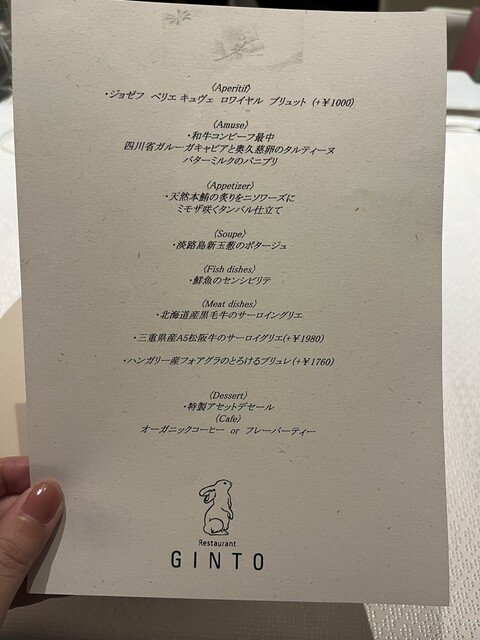 〈Aperitif〉
・ジョゼフ ペリエ キュヴェ ロワイヤル ブリュット (+￥1000)
〈Amuse〉
・和牛コンビーフ最中
四川省ガルーガキャビアと奥久慈卵のタルティーヌ
バターミルクのパニプリ
〈Appetizer〉
・天然本鮪の炙りをニソワーズに
ミモザ咲くタンバル仕立て
〈Soupe〉
・淡路島新玉葱のポタージュ
〈Fish dishes〉
・鮮魚のセンシビリテ
〈Meat dishes〉
・北海道産黒毛牛のサーロイングリエ
・三重県産A5松阪牛のサーロイグリエ(+￥1980)
・ハンガリー産フォアグラのとろけるブリュレ(+￥1760)
〈Dessert〉
・特製アセットデセール
〈Cafe〉
オーガニックコーヒー or フレーバーティー
Restaurant
GINTO